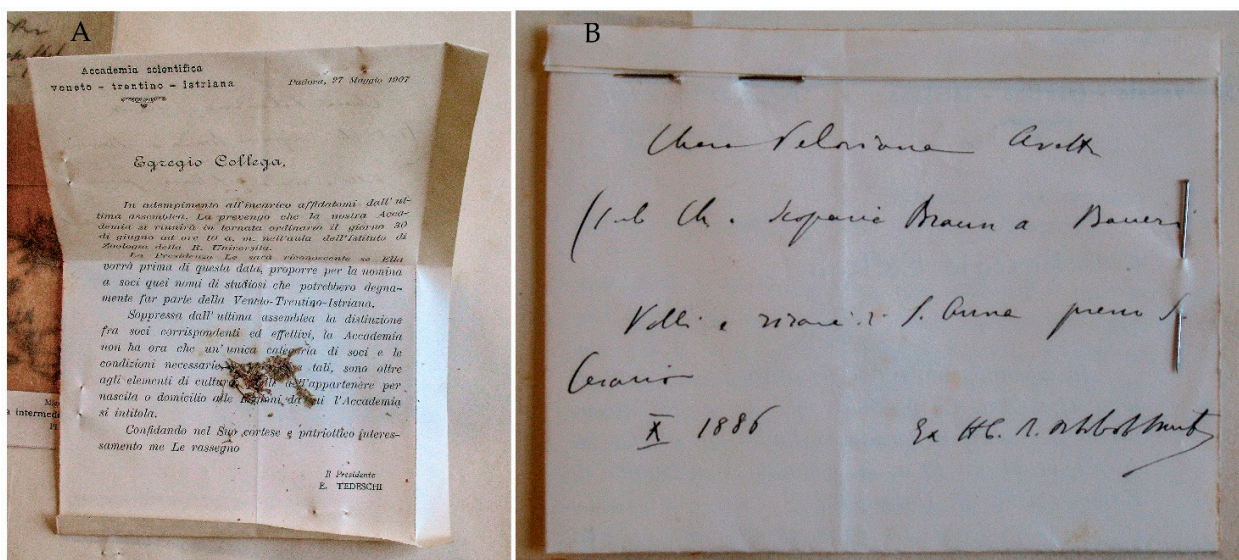 A
Accademia scientifica
veneto - trentino - istriana
Padova, 27 Maggio 1907
Egregio Collega,
In adempimento all'incarico affidatomi dall'ul-
tima assemblea. La prevengo che la nostra Acca-
demia si riunirà in tornata ordinaria il giorno 30
di giugno ad ore 10 a. m. nell'aula dell'Istituto di
Zoologia della R. Università.
La Presidenza Le sarà riconoscente se Ella
vorrà prima di questa data, proporre per la nomina
a soci quei nomi di studiosi che potrebbero degna-
mente far parte della Veneto-Trentino-Istriana.
Soppressa dall'ultima assemblea la distinzione
fra soci corrispondenti ed effettivi, la Accademia
non ha ora che un'unica categoria di soci e le
condizioni necessarie tali, sono oltre
agli elementi di cultura, dell'appartenere per
nascita o domicilio alle da cui l'Accademia
si intitola.
Confidando nel Suo cortese e patriottico interes-
samento me Le rassegno
Il Presidente
E. TEDESCHI
a intermed
B
Chara
(sub Ch. scoparia Braun a Baueri
Valli e risaie di S. Anna presso S.
X 1886
Ex